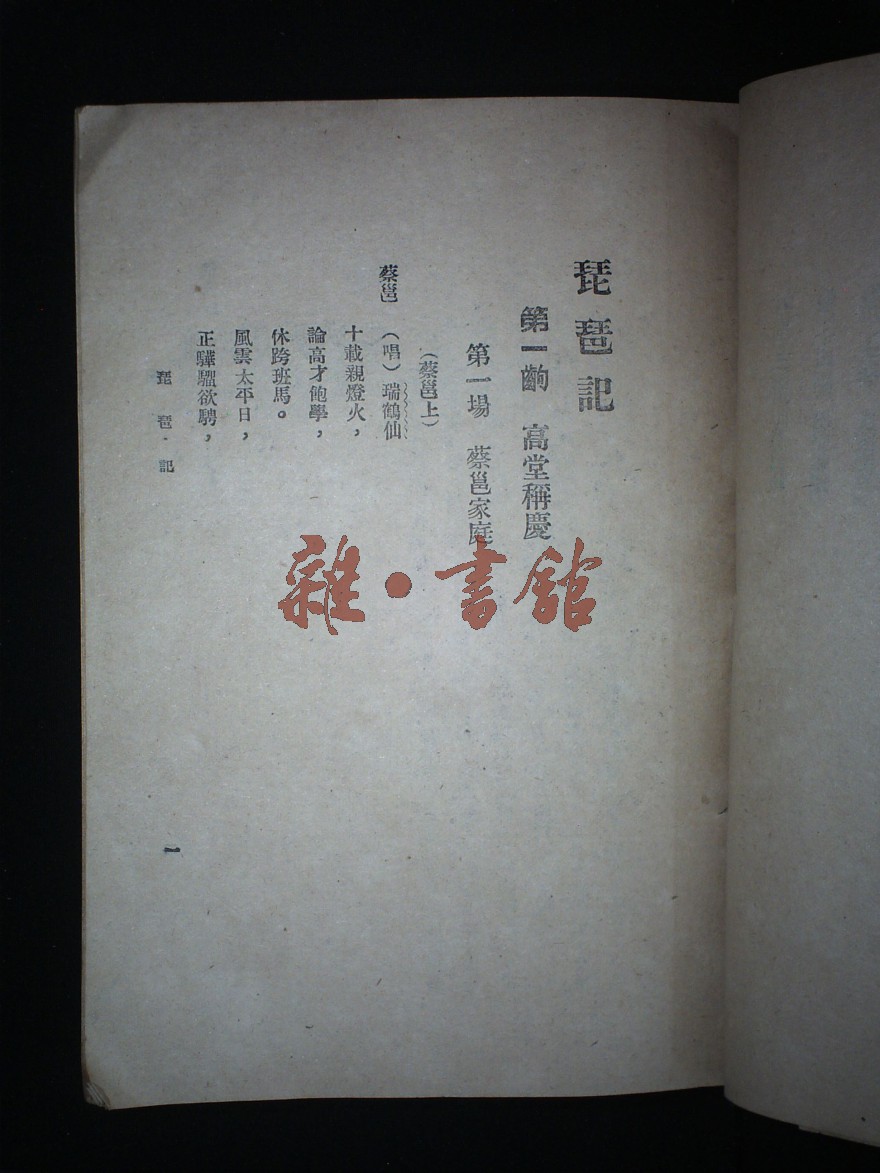 琵琶記
第一齣　高堂稱慶
第一場　蔡邕家庭
（蔡邕上）
蔡邕　（唱）瑞鶴仙
十載親燈火，
論高才飽學，
休跨班馬。
風雲太平日，
正驊騮欲騁，
琵琶記
一
雜・書館